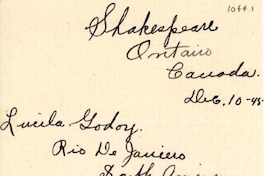 1044.1
Shakespeare
Ontairo
Canada.
Dec. 10-45
Lucila Godoy.
Rio De Janiero
South